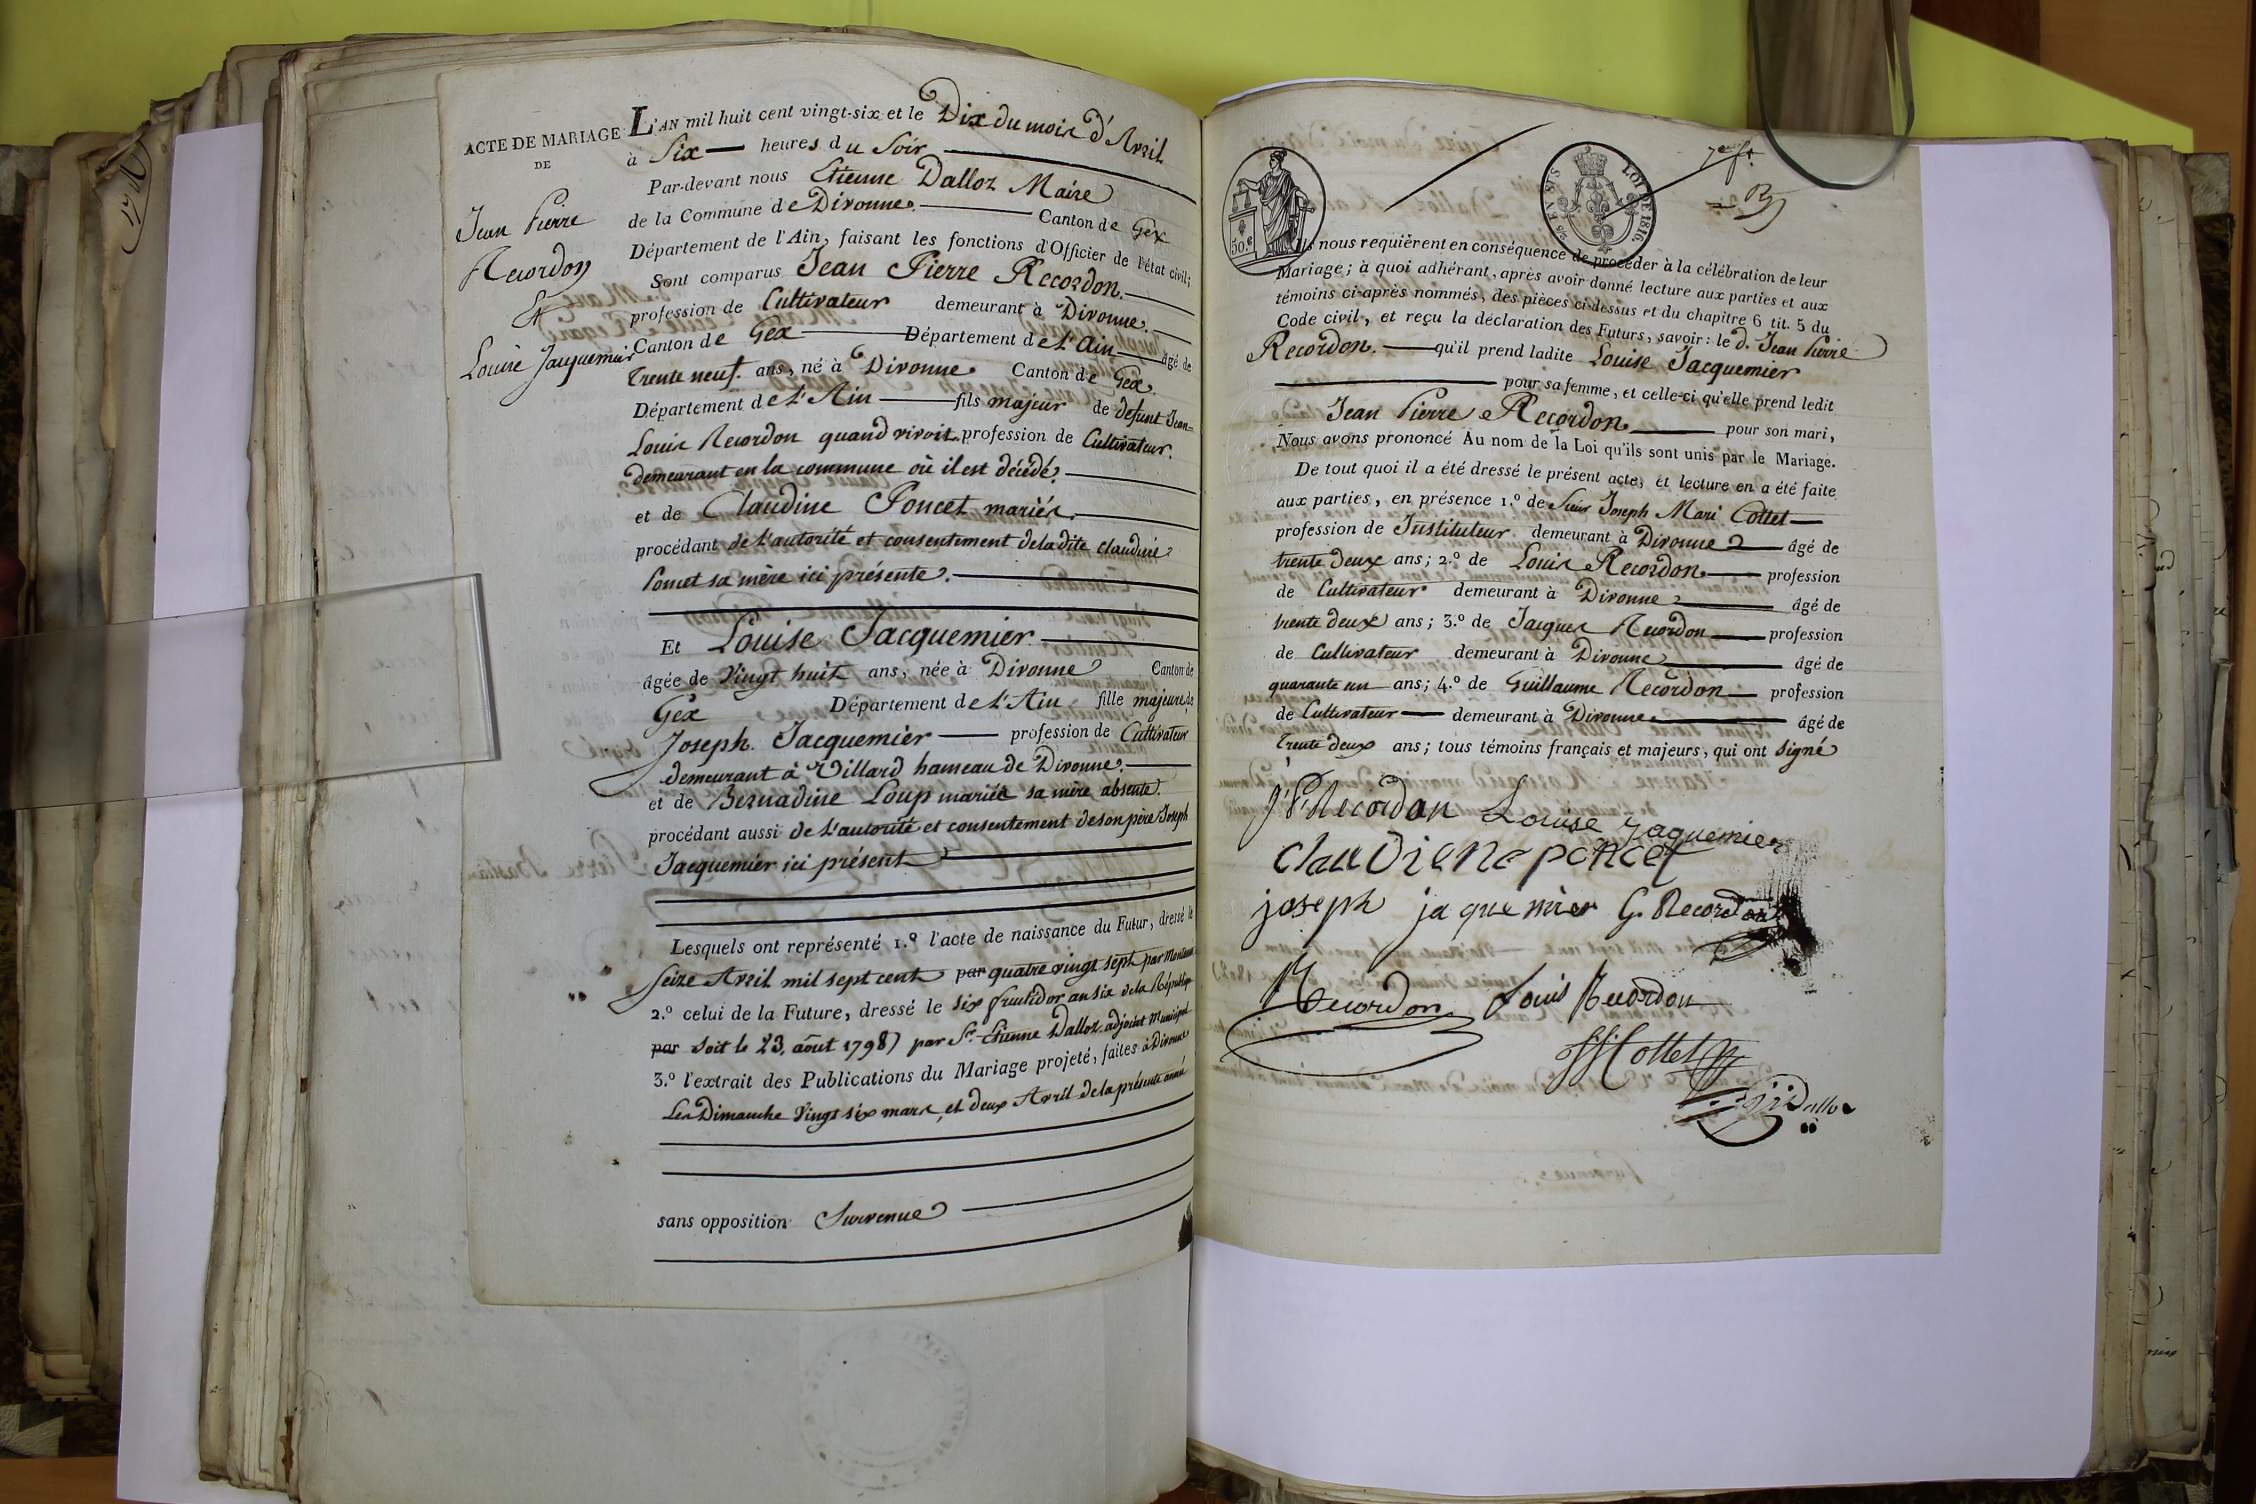 ACTE DE MARIAGE
DE
Jean Pierre
Recordon
Et
Louise Jacquemier
L'AN mil huit cent vingt-six et le Dix du mois d'Avril
à Six heures du Soir
Par-devant nous Etienne Dalloz Maire
de la Commune de Divonne. Canton de Gex
Département de l'Ain, faisant les fonctions d'Officier de l'état civil;
Sont comparus Jean Pierre Recordon.
profession de Cultivateur demeurant à Divonne.
Canton de Gex Département de L'Ain âgé de
trente neuf. ans, né à Divonne Canton de Gex.
Département de L'Ain fils majeur de defunt Jean=
Louis Recordon quand vivoit profession de Cultivateur.
demeurant en la commune où il est décédé,
et de Claudine Poncet mariés.
procédant de L'autorité et consentement de la dite Claudine
Poncet sa mère ici présente.
Et Louise Jacquemier
âgée de Vingt huit ans, née à Divonne Canton de
Gex Département de L'Ain fille majeure de
Joseph Jacquemier profession de Cultivateur
demeurant à Villard hameau de Divonne.
et de Bernadine Loup mariée sa mère absente.
procédant aussi de L'autorité et consentement de son père Joseph
Jacquemier ici présent
Lesquels ont représenté 1.º l'acte de naissance du Futur, dressé le
Seize Avril mil sept cent par quatre vingt sept par
2.º celui de la Future, dressé le six fructidor an six de la République
par soit le 23, août 1798) par Sr. Etienne Dalloz adjoint municipal
3.º l'extrait des Publications du Mariage projeté, faites à Divonne
Les Dimanche Vingt six mars, et deux Avril de la présente année
sans opposition Survenue
50.c
LOI DE 1816.
Ils nous requièrent en conséquence de procéder à la célébration de leur
Mariage; à quoi adhérant, après avoir donné lecture aux parties et aux
témoins ci-après nommés, des pièces ci-dessus et du chapitre 6 tit. 5 du
Code civil, et reçu la déclaration des Futurs, savoir: le d. Jean Pierre
Recordon. qu'il prend ladite Louise Jacquemier
pour sa femme, et celle-ci qu'elle prend ledit
Jean Pierre Recordon. pour son mari,
Nous avons prononcé Au nom de la Loi qu'ils sont unis par le Mariage.
De tout quoi il a été dressé le présent acte, et lecture en a été faite
aux parties, en présence 1.º de Sieur Joseph Mari Cottet
profession de Instituteur demeurant à Divonne âgé de
trente deux ans; 2.º de Louis Recordon profession
de Cultivateur demeurant à Divonne âgé de
trente deux ans; 3.º de Jacques Recordon profession
de Cultivateur demeurant à Divonne âgé de
quarante un ans; 4.º de Guillaume Recordon profession
de Cultivateur demeurant à Divonne âgé de
trente deux ans; tous témoins français et majeurs, qui ont signé
J P Recordon Louise jaquemier
claudiene poncet
joseph jaquemier G. Recordon
Recordon Louis Recordon
Cottet
Dalloz